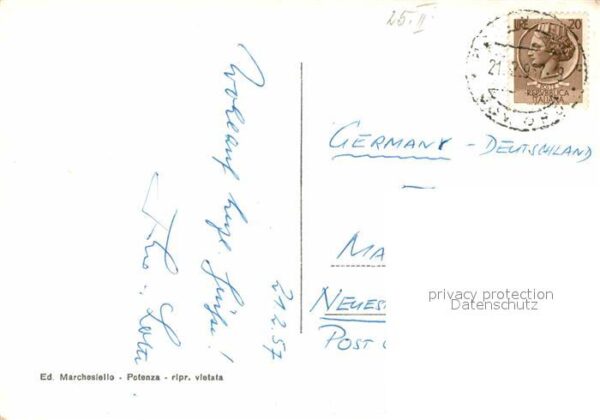 25.II
LIRE 20
POSTE
REPUBBLICA
ITALIANA
GERMANY - DEUTSCHLAND
MA
NEUES
POST
privacy protection
Datenschutz
Wohlauf herzl. Grüße!
21.2.57
Ed. Marchesiello - Potenza - ripr. vietata